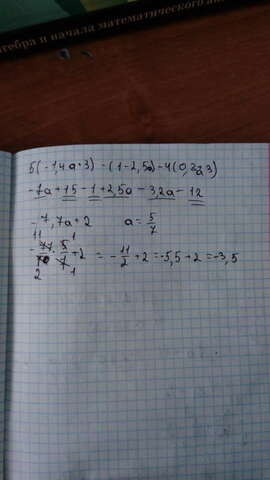 алгебра и начала математического а
5(-1,4a+3)-(1-2,5a)-4(0,8a+3)
-7a+15-1+2,5a-3,2a-12
-7,7a+2 a=5/7
-77/10·5/7+2 = -11/2+2=-5,5+2=-3,5